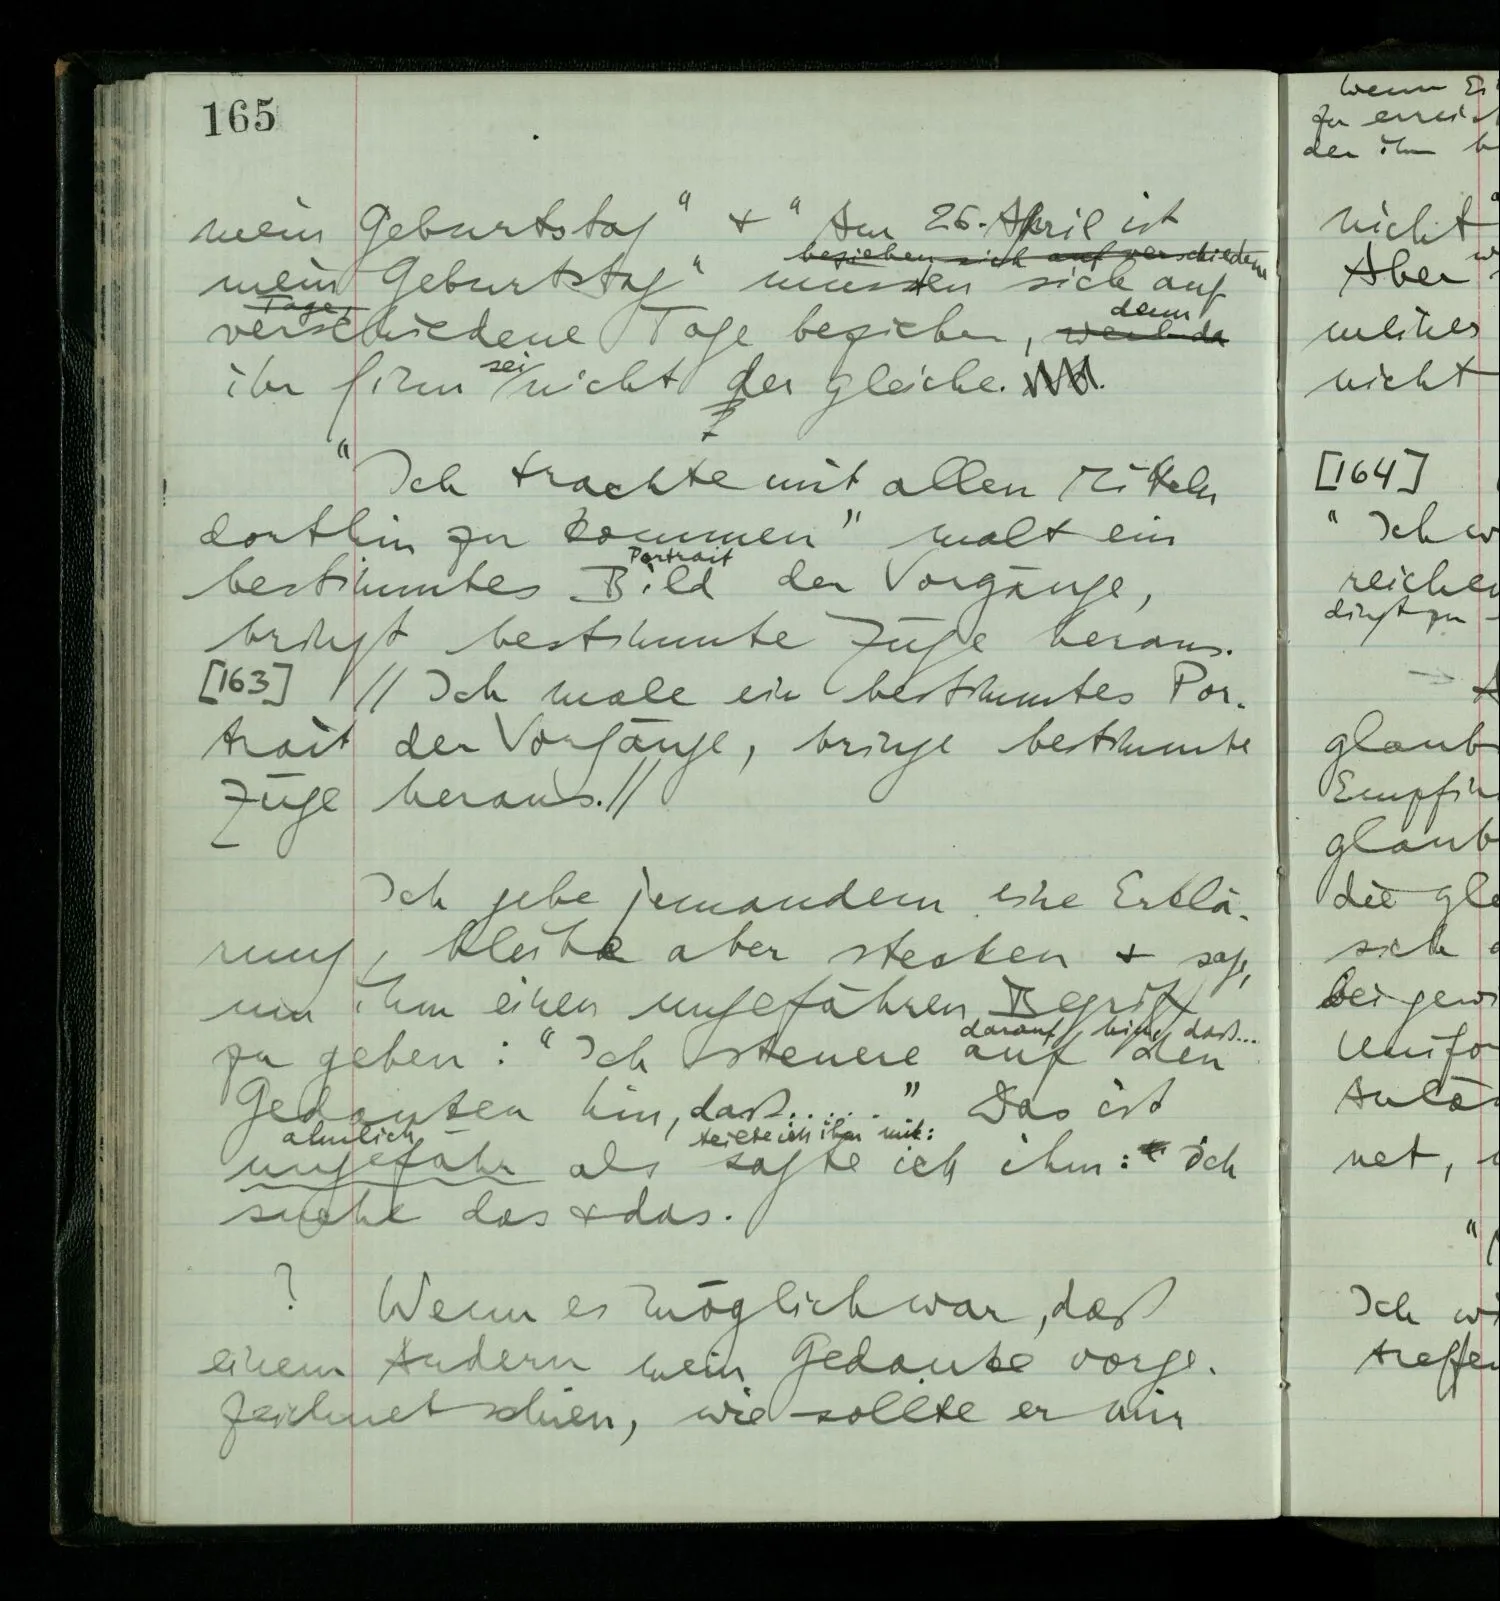 165
mein Geburtstag" + "Am 26. April ist
beziehen sich auf verschiedene
mein Geburtstag" müssen sich auf
Tage,
denn
verschiedene Tage beziehen, weil da
sei
ihr Sinn nicht der gleiche.
"Ich trachte mit allen Mitteln
dorthin zu kommen" malt ein
Portrait
bestimmtes Bild der Vorgänge,
bringt bestimmte Züge heraus.
[163] // Ich male ein bestimmtes Por-
trait der Vorgänge, bringe bestimmte
Züge heraus.//
Ich gebe jemandem eine Erklä-
rung, bleibe aber stecken + sage,
um ihm einen ungefähren Begriff
darauf hin, daß...
zu geben: "Ich steuere auf den
Gedanken hin, daß......" Das ist
ähnlich
teilte ich ihm mit:
ungefähr als sagte ich ihm: ich
suche das + das.
? Wenn es möglich war, daß
einem Andern mein Gedanke vorge-
zeichnet schien, wie sollte er mir
wenn
zu
der ihm
nicht
Aber
welches
nicht
[164]
"Ich
reichen
dingt zu
glaub
glaub
die
sich
bei
net,
"
Ich
treffen